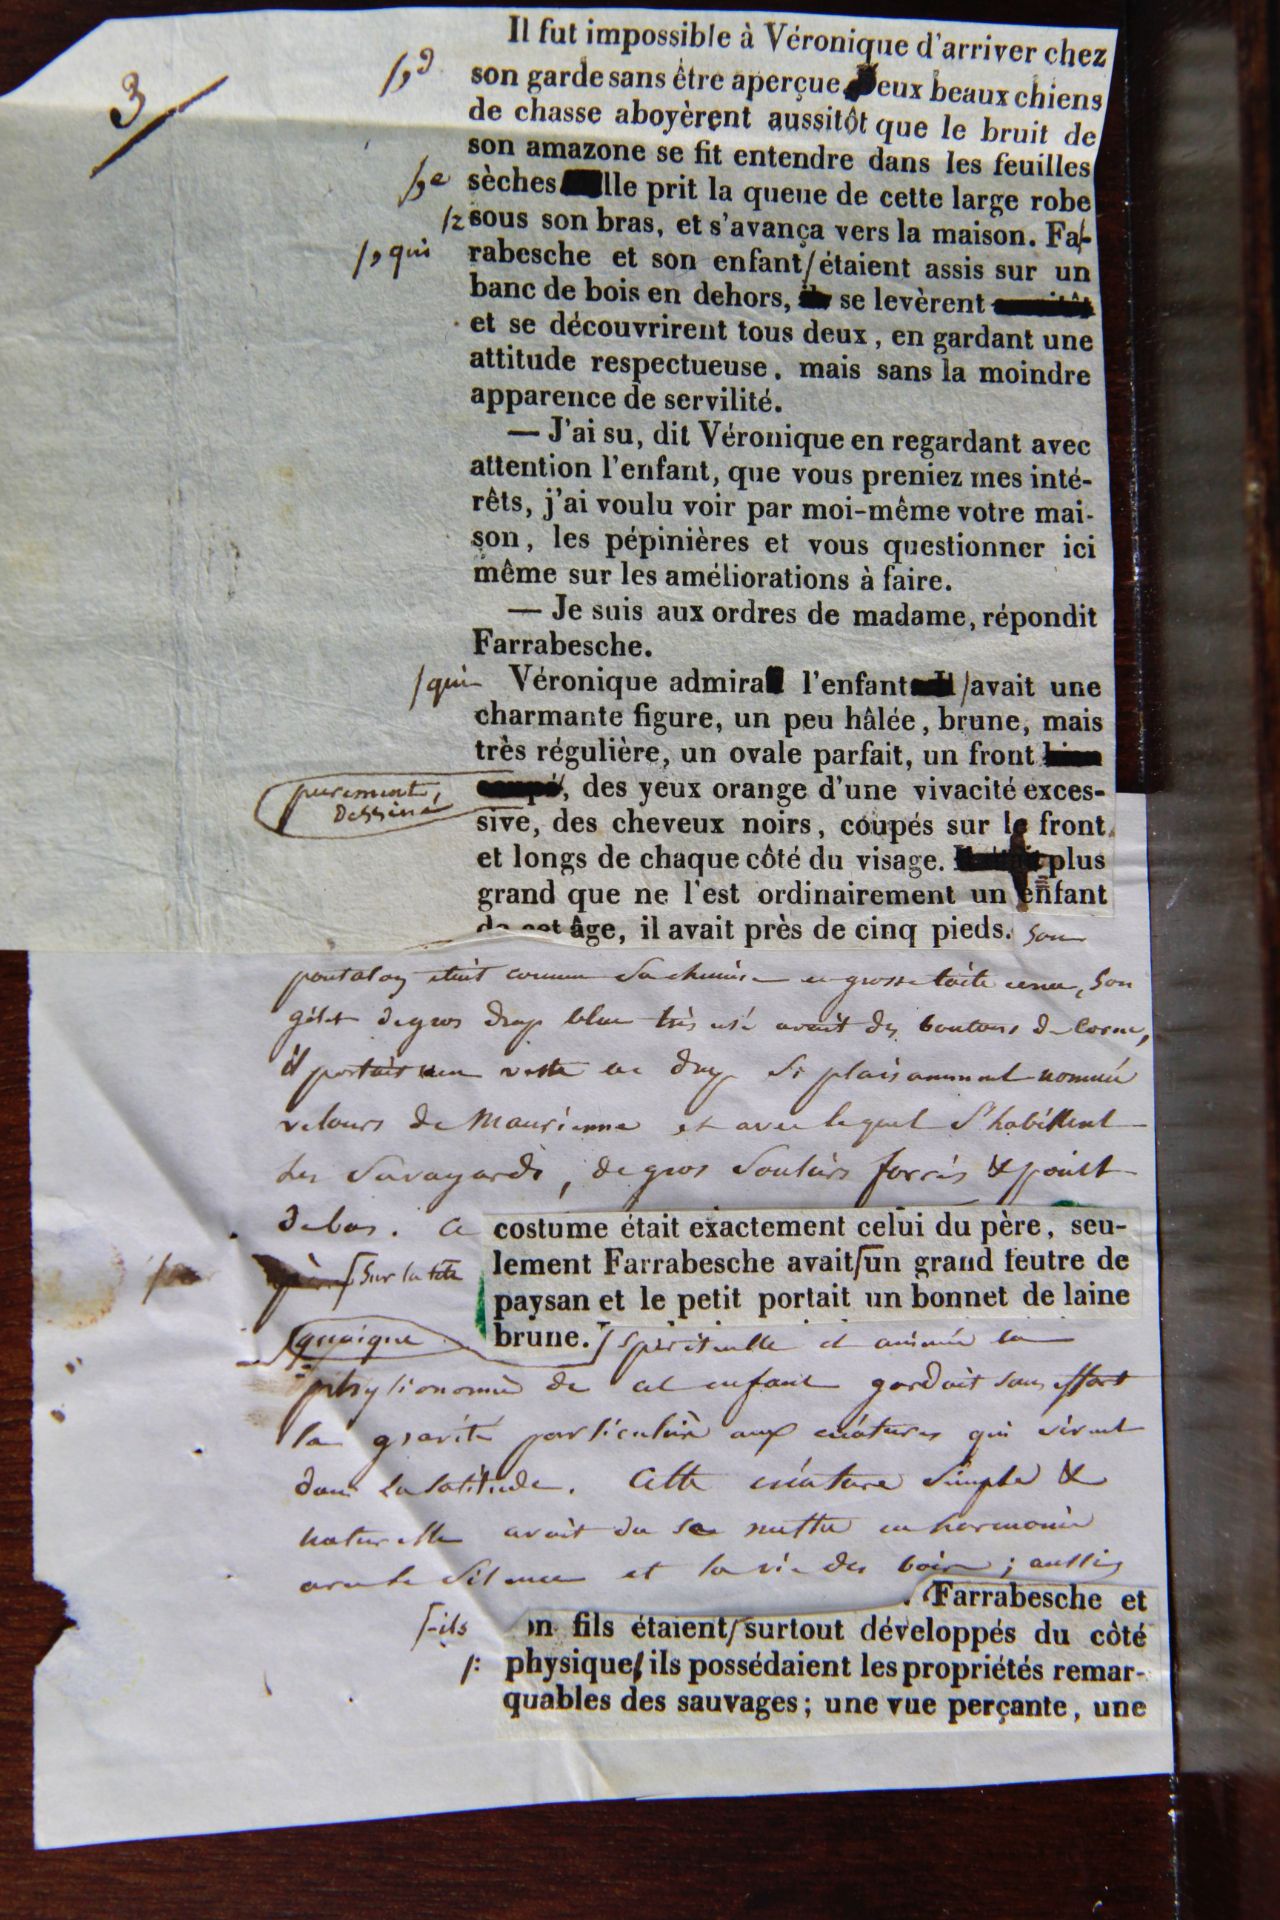 3
Il fut impossible à Véronique d'arriver chez
/,d
son garde sans être aperçue, Deux beaux chiens
de chasse aboyèrent aussitôt que le bruit de
son amazone se fit entendre dans les feuilles
/,e
sèches lle prit la queue de cette large robe
/z
sous son bras, et s'avança vers la maison. Fa-
/, qui
rabesche et son enfant/étaient assis sur un
banc de bois en dehors, se levèrent
et se découvrirent tous deux, en gardant une
attitude respectueuse, mais sans la moindre
apparence de servilité.
— J'ai su, dit Véronique en regardant avec
attention l'enfant, que vous preniez mes inté-
rêts, j'ai voulu voir par moi-même votre mai-
son, les pépinières et vous questionner ici
même sur les améliorations à faire.
— Je suis aux ordres de madame, répondit
Farrabesche.
/qui
Véronique admira l'enfant /avait une
charmante figure, un peu hâlée, brune, mais
très régulière, un ovale parfait, un front bien
purement
dessiné
coupé, des yeux orange d'une vivacité exces-
sive, des cheveux noirs, coupés sur le front
et longs de chaque côté du visage. plus
grand que ne l'est ordinairement un enfant
de cet âge, il avait près de cinq pieds. Son
pantalon était comme sa chemise en grosse toile écrue, son
gilet de gros drap bleu très usé avait des boutons de corne,
il portait une veste de drap si plaisamment nommé
velours de Maurienne et avec lequel s'habillent
les Savoyards, de gros souliers ferrés & point
de bas. Ce costume était exactement celui du père, seu-
/sur la tête
lement Farrabesche avait/un grand feutre de
paysan et le petit portait un bonnet de laine
quoique
brune. / spirituelle et animée la
physionomie de cet enfant gardait sans effort
la gravité particulière aux créatures qui vivent
dans la solitude. Cette créature simple &
naturelle avait du se mettre en harmonie
avec le silence et la vie des bois ; aussi
Farrabesche et
/-ils
on fils étaient/surtout développés du côté
/:
physique/ ils possédaient les propriétés remar-
quables des sauvages ; une vue perçante, une